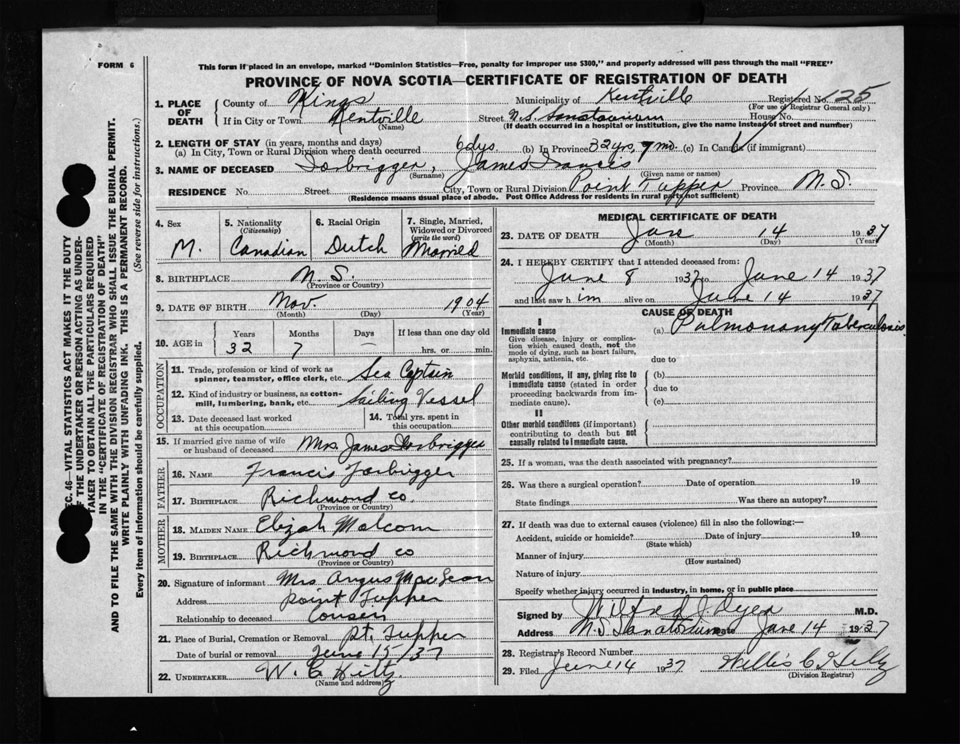 FORM 6
This form if placed in an envelope, marked "Dominion Statistics—Free, penalty for improper use $300," and properly addressed will pass through the mail "FREE"
PROVINCE OF NOVA SCOTIA—CERTIFICATE OF REGISTRATION OF DEATH
1. PLACE OF DEATH { County of Kings Municipality of Kentville Registered No. 125
(For use of Registrar General only)
If in City or Town Kentville (Name) Street N.S. Sanatorium House No.
(If death occurred in a hospital or institution, give the name instead of street and number)
2. LENGTH OF STAY (in years, months and days)
(a) In City, Town or Rural Division where death occurred 6 dys. (b) In Province 32 yrs, 7 mo. (c) In Canada (if immigrant)
3. NAME OF DECEASED Forbrigger, James Francis
(Surname) (Given name or names)
RESIDENCE No. Street City, Town or Rural Division Point Tupper Province N.S.
(Residence means usual place of abode. Post Office Address for residents in rural parts not sufficient)
4. Sex M.
5. Nationality (Citizenship) Canadian
6. Racial Origin Dutch
7. Single, Married, Widowed or Divorced (write the word) Married
8. BIRTHPLACE N.S.
(Province or Country)
9. DATE OF BIRTH Nov. 1904
(Month) (Day) (Year)
10. AGE in { Years Months Days If less than one day old
32 7 — hrs. or min.
OCCUPATION
11. Trade, profession or kind of work as spinner, teamster, office clerk, etc. Sea Captain
12. Kind of industry or business, as cotton-mill, lumbering, bank, etc. Sailing Vessel
13. Date deceased last worked at this occupation
14. Total yrs. spent in this occupation
15. If married give name of wife or husband of deceased Mrs James Forbrigger
FATHER
16. NAME Francis Forbrigger
17. BIRTHPLACE Richmond co.
(Province or Country)
MOTHER
18. MAIDEN NAME Elizah Malcom
19. BIRTHPLACE Richmond co
(Province or Country)
20. Signature of informant Mrs. Angus MacLean
Address Point Tupper
Relationship to deceased Cousen
21. Place of Burial, Cremation or Removal Pt. Tupper
Date of burial or removal June 15/37
22. UNDERTAKER W. C. Hiltz
(Name and address)
MEDICAL CERTIFICATE OF DEATH
23. DATE OF DEATH June 14 1937
(Month) (Day) (Year)
24. I HEREBY CERTIFY that I attended deceased from:
June 8 1937 to June 14 1937
and last saw him alive on June 14 1937
CAUSE OF DEATH
I
Immediate cause (a) Pulmonary Tuberculosis
Give disease, injury or complication which caused death, not the mode of dying, such as heart failure, asphyxia, asthenia, etc.
due to
Morbid conditions, if any, giving rise to immediate cause (stated in order proceeding backwards from immediate cause).
(b)
due to
(c)
II
Other morbid conditions (if important) contributing to death but not causally related to immediate cause.
25. If a woman, was the death associated with pregnancy?
26. Was there a surgical operation? Date of operation 19
State findings Was there an autopsy?
27. If death was due to external causes (violence) fill in also the following:—
Accident, suicide or homicide? Date of injury 19
(State which)
Manner of injury
(How sustained)
Nature of injury
Specify whether injury occurred in industry, in home, or in public place
Signed by Wilfred J Dyer M.D.
Address N.S. Sanatorium Date June 14 1937
28. Registrar's Record Number
29. Filed June 14 1937 Willis C Hiltz
(Division Registrar)
SEC. 46—VITAL STATISTICS ACT MAKES IT THE DUTY
OF THE UNDERTAKER OR PERSON ACTING AS UNDER-
TAKER TO OBTAIN ALL THE PARTICULARS REQUIRED
IN THE "CERTIFICATE OF REGISTRATION OF DEATH"
AND TO FILE THE SAME WITH THE DIVISION REGISTRAR WHO SHALL ISSUE THE BURIAL PERMIT.
WRITE PLAINLY WITH UNFADING INK. THIS IS A PERMANENT RECORD.
Every item of information should be carefully supplied. (See reverse side for instructions.)